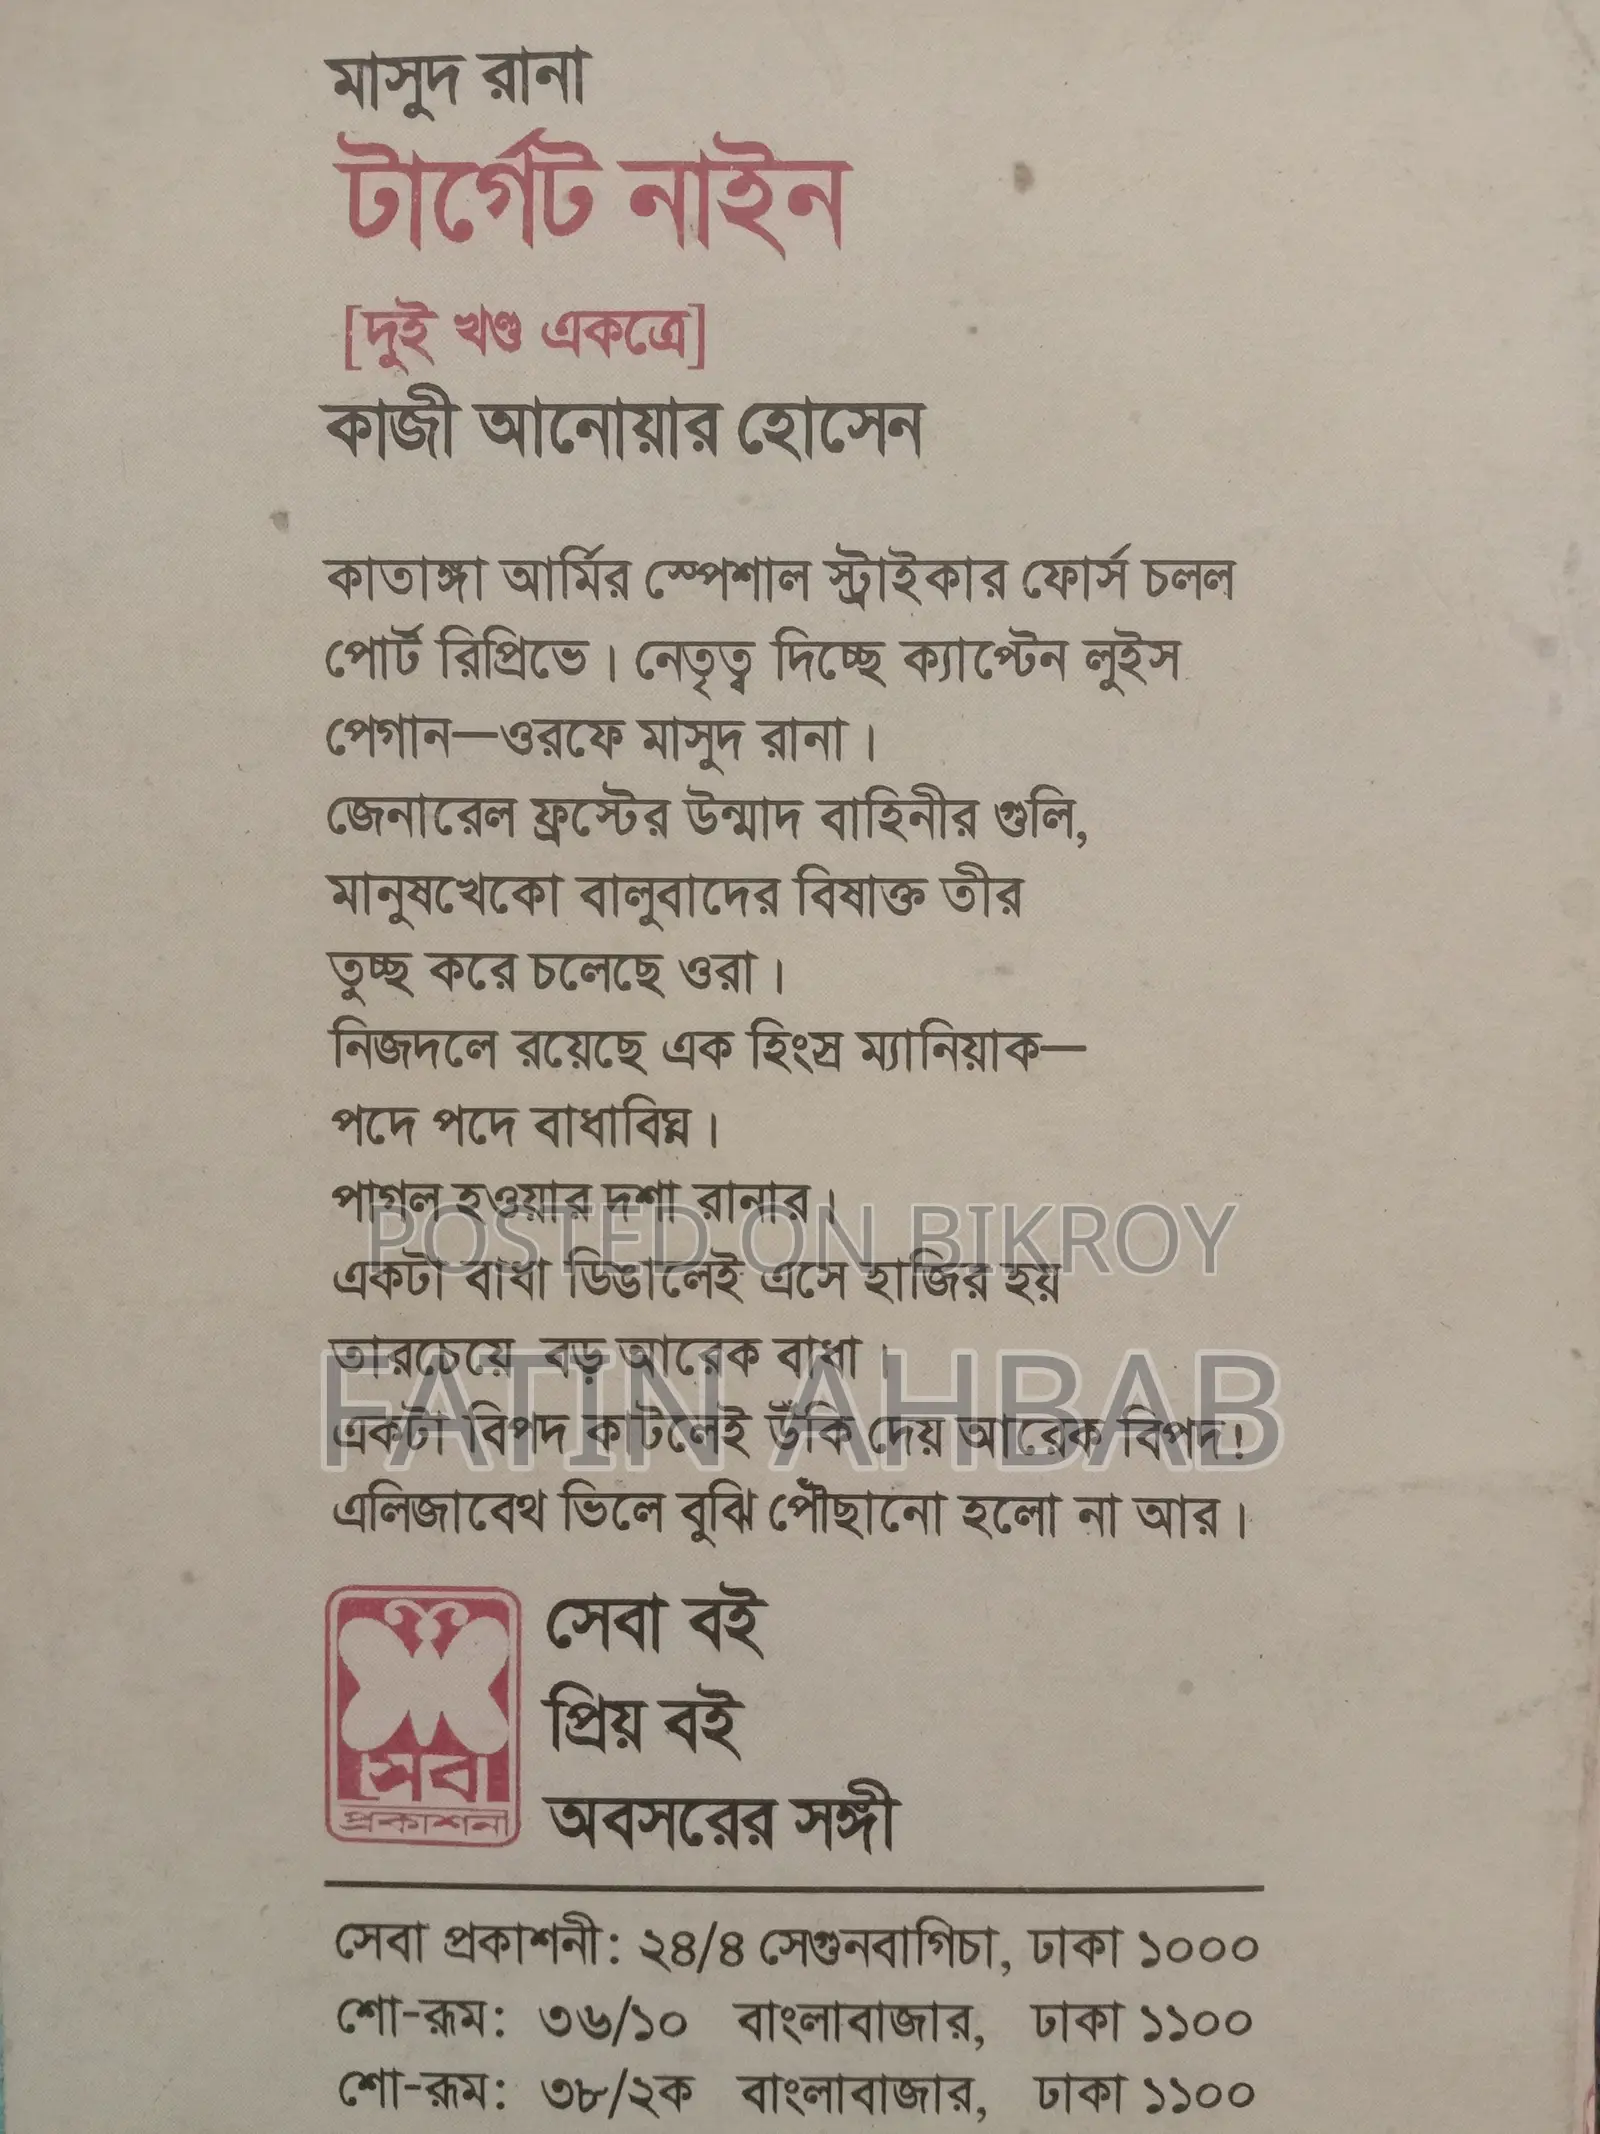 মাসুদ রানা
টার্গেট নাইন
[দুই খণ্ড একত্রে]
কাজী আনোয়ার হোসেন
কাতাঙ্গা আর্মির স্পেশাল স্ট্রাইকার ফোর্স চলল
পোর্ট রিপ্রিভে। নেতৃত্ব দিচ্ছে ক্যাপ্টেন লুইস
পেগান—ওরফে মাসুদ রানা।
জেনারেল ফ্রস্টের উন্মাদ বাহিনীর গুলি,
মানুষখেকো বালুবাদের বিষাক্ত তীর
তুচ্ছ করে চলেছে ওরা।
নিজদলে রয়েছে এক হিংস্র ম্যানিয়াক—
পদে পদে বাধাবিঘ্ন।
পাগল হওয়ার দশা রানার।
POSTED ON BIKROY
একটা বাধা ডিঙালেই এসে হাজির হয়
তারচেয়ে বড় আরেক বাধা।
FATIN AHBAB
একটা বিপদ কাটলেই উঁকি দেয় আরেক বিপদ!
এলিজাবেথ ভিলে বুঝি পৌঁছানো হলো না আর।
সেবা বই
প্রিয় বই
অবসরের সঙ্গী
সেবা
প্রকাশনী
সেবা প্রকাশনী: ২৪/৪ সেগুনবাগিচা, ঢাকা ১০০০
শো-রূম: ৩৬/১০ বাংলাবাজার, ঢাকা ১১০০
শো-রূম: ৩৮/২ক বাংলাবাজার, ঢাকা ১১০০